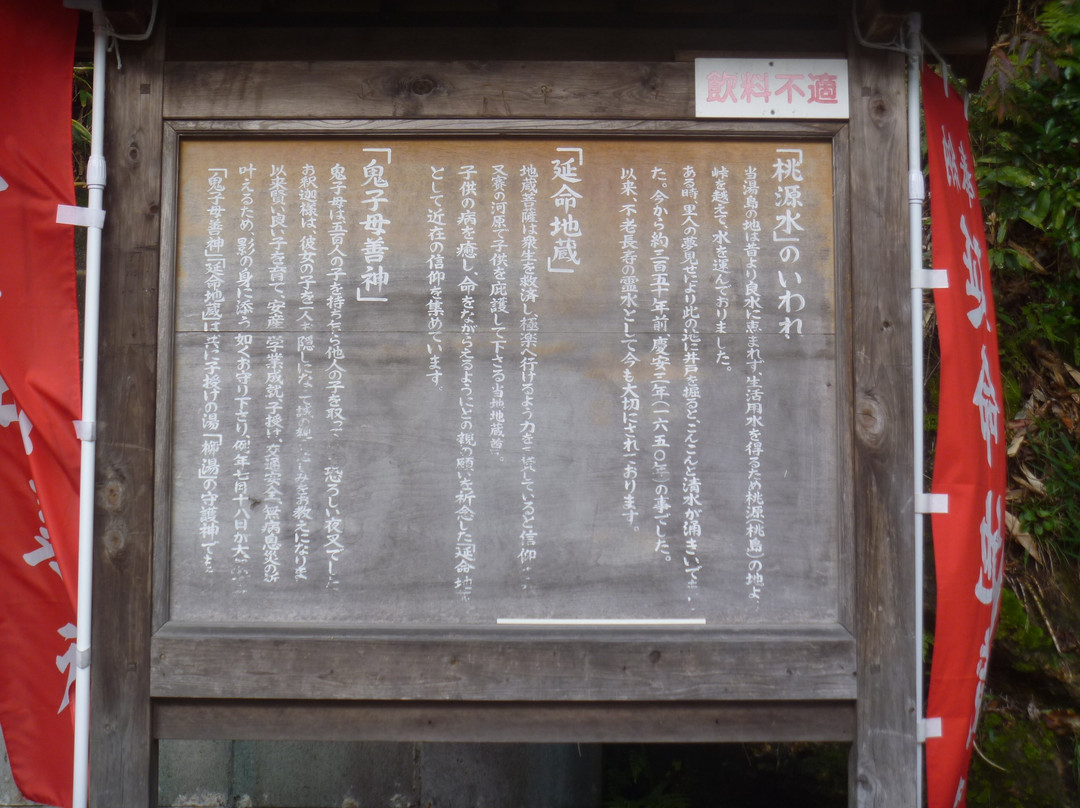 飲料不適
「桃源水」のいわれ
当湯島の地は昔より良水に恵まれず、生活用水を得るため桃源(桃島)の地よ
峠を越えて、水を運んでおりました。
ある時、里人の夢見せにより此の地に井戸を掘ると、こんこんと清水が涌きいでまし
た。今から約三百五十年前、慶安三年(一六五〇年)の事でした。
以来、不老長寿の霊水として今も大切にされております。
「延命地蔵」
地蔵菩薩は衆生を救済し、極楽へ行けるよう力を していると信仰
又賽の河原で子供を庇護して下さる当地地蔵尊は
子供の病を癒し、命をながらえるようにとの親の願いを祈念した延命地蔵
として近在の信仰を集めています。
「鬼子母善神」
鬼子母は五百人の子を持ちながら他人の子を取っ 恐ろしい夜叉でした
お釈迦様は、彼女の子を一人お隠しになって誡め、親 しみをお教えになりま
以来賢い良い子を育て、安産、学業成就、子授け、交通安全、無病息災の祈
叶えるため、影の身に添う如くお守り下さり、例年七月十八日が大
「鬼子母善神」「延命地蔵」は共に子授けの湯「柳湯」の守護神でも
奉
延命地